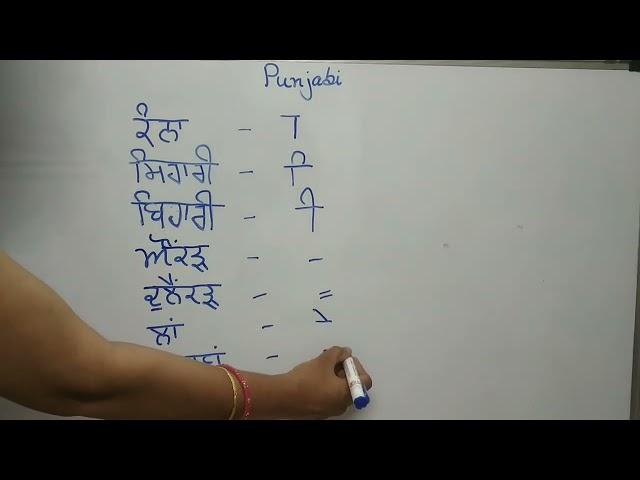 Punjabi
ਕੰਨਾ - ਾ
ਸਿਹਾਰੀ - ਿ
ਬਿਹਾਰੀ - ੀ
ਔਂਕੜ - -
ਦੁਲੈਂਕੜ - =
ਲਾਂ - ੇ